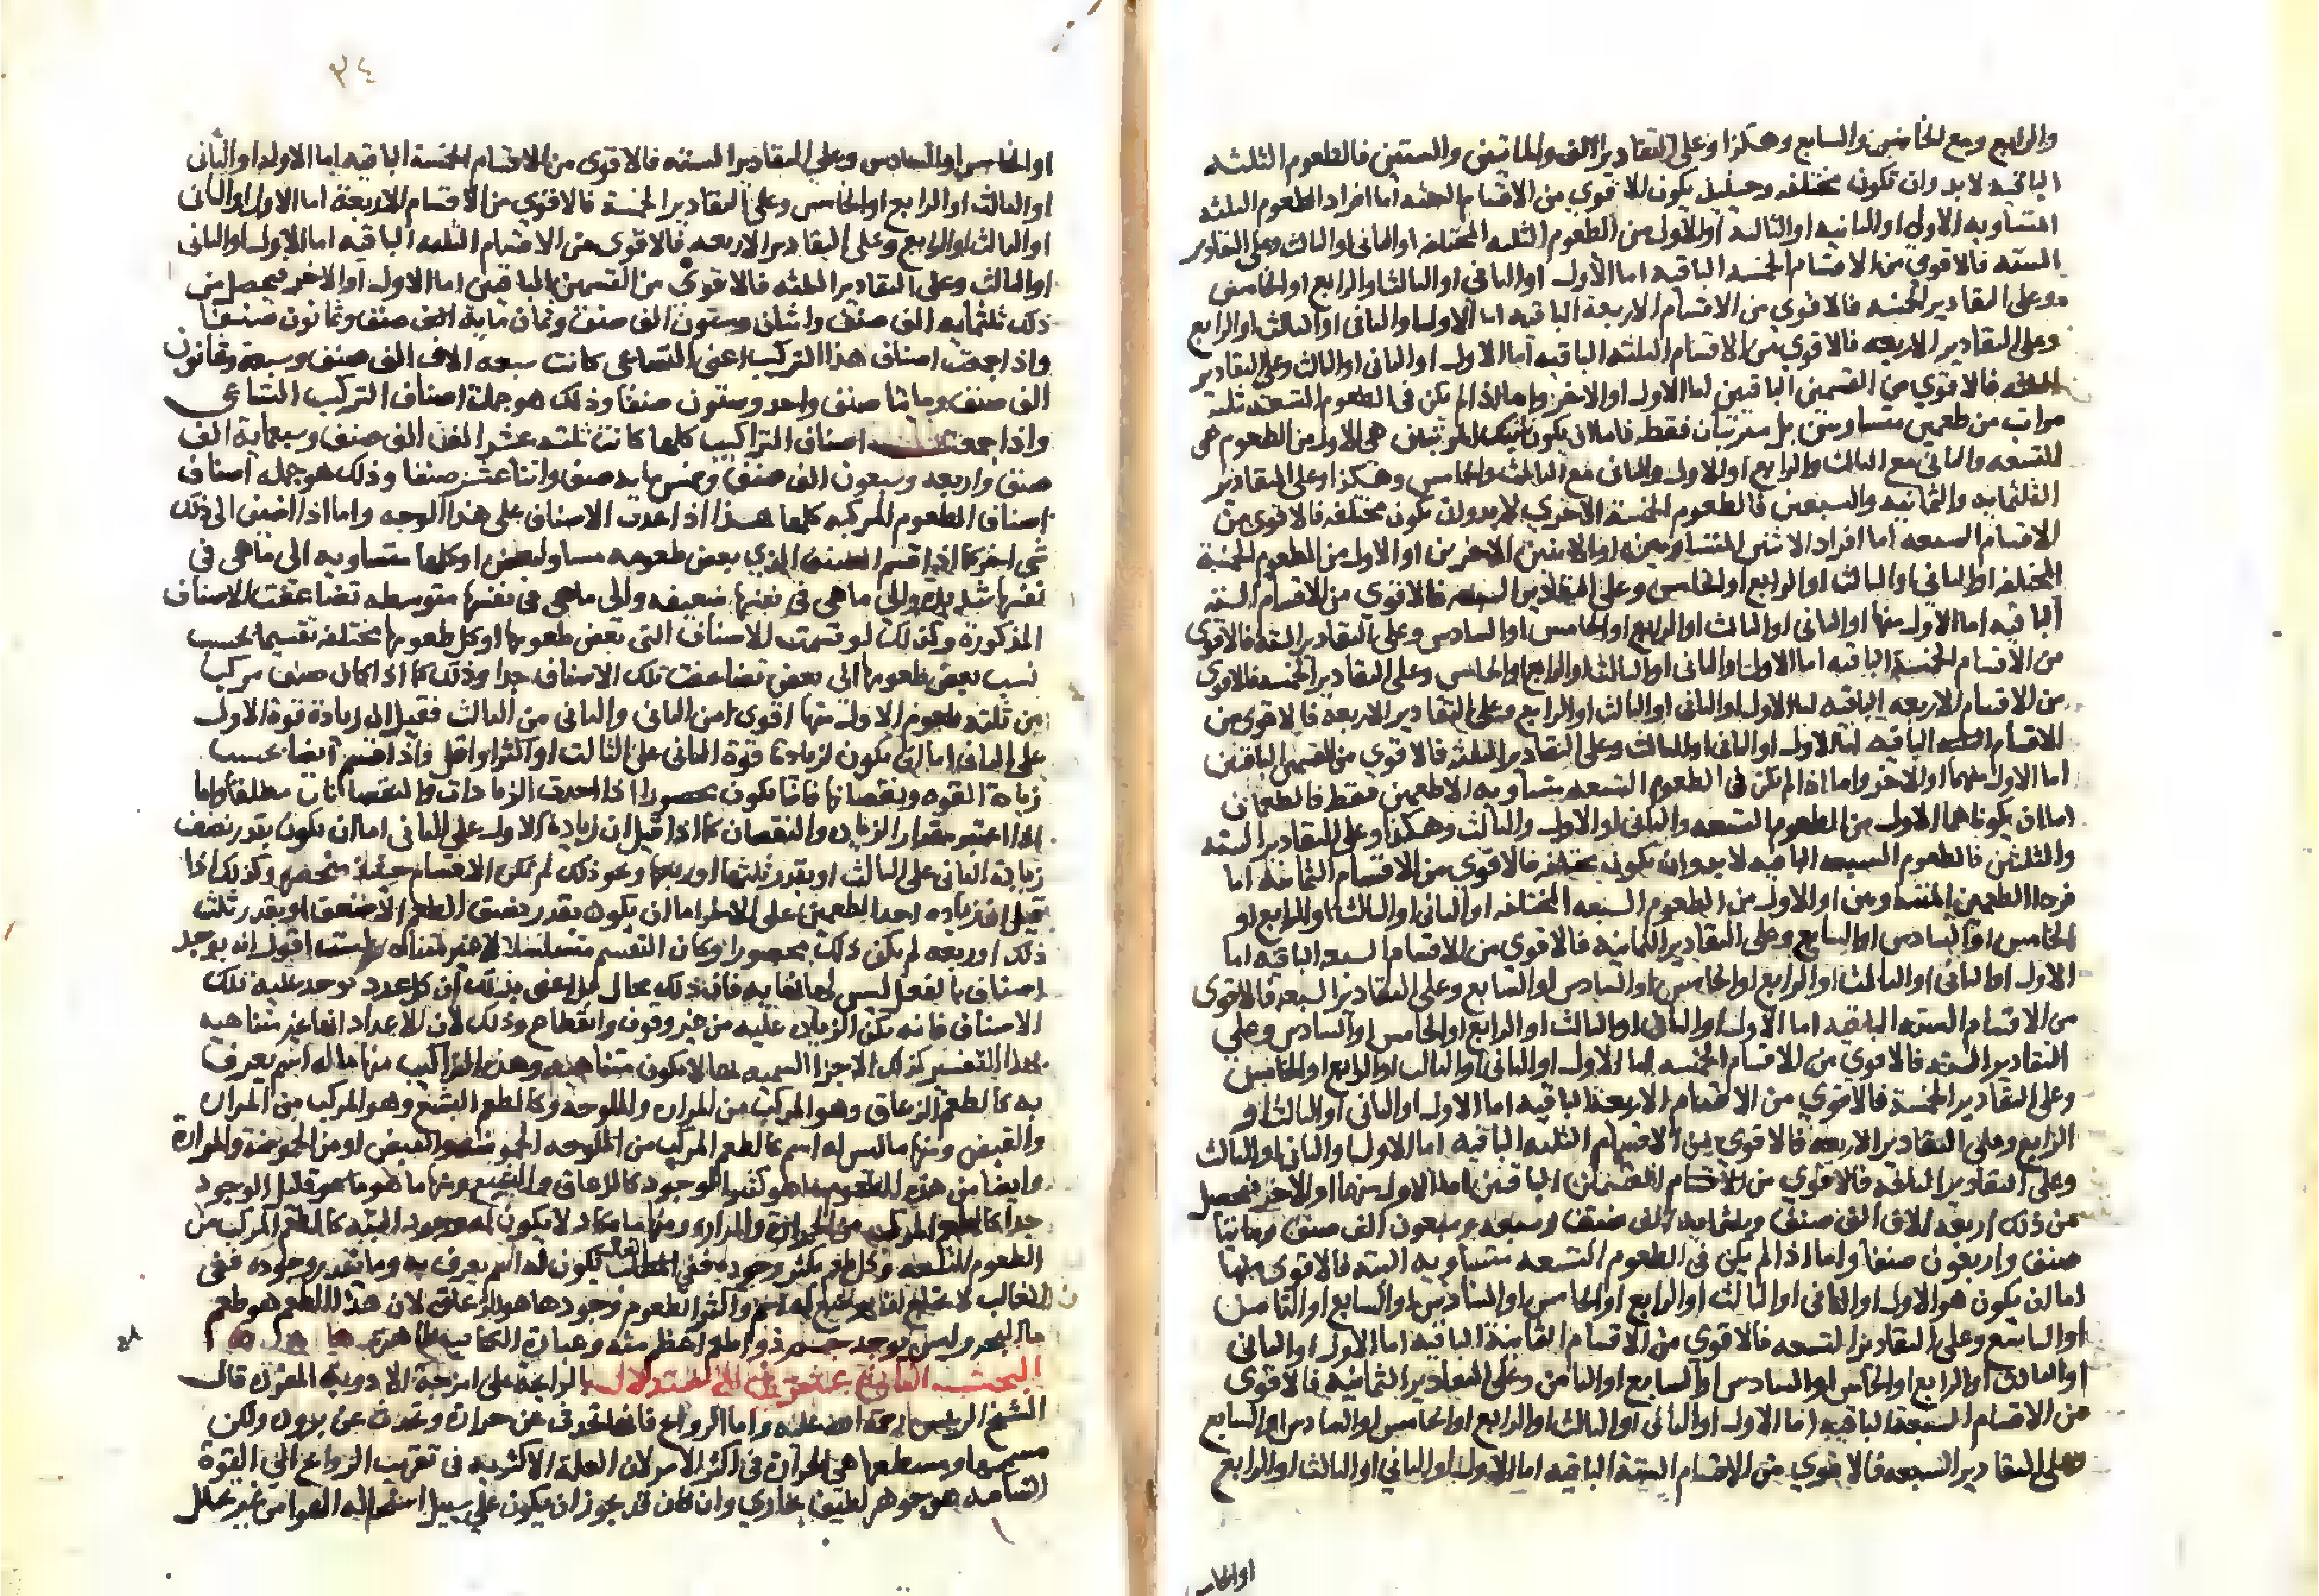 والرابع ومع الخامس والسابع وهكذا وعلى التقادير الالف والمايتين والستين فالطعوم الثلثه
الباقيه لابد وان تكون مختلفه وحينئذ يكون الاقوي من الاقسام اما افراد الطعوم الثلثه
المتساويه الاولى او الثانيه او الثالثة او الاول من الطعوم الثلثه المختلفه او الثاني او الثالث وعلى التقادير
السته فالاقوي من الاقسام الخمسه الباقيه اما الاول او الثاني او الثالث او الرابع او الخامس
وعلى التقادير الخمسه فالاقوي من الاقسام الاربعة الباقيه اما الاول او الثاني او الثالث او الرابع
وعلى التقادير الاربعه فالاقوي من الاقسام الثلثه الباقيه اما الاول او الثاني او الثالث وعلى التقادير
الثلثه فالاقوي من القسمين الباقيين اما الاول او الاخر واما اذا لم يكن في الطعوم التسعه ثلث
مراتب من طعمين متساويين بل مرتبتان فقط فاما ان يكون المرتبتان هي الاول من الطعوم هي
التسعه والثاني مع الثالث والرابع او الاول والثاني مع الثالث والخامس وهكذا وعلى التقادير
الثلثمايه والثمانيه والسبعين فالطعوم الخمسة الاخري لابد وان تكون مختلفه فالاقوى من
الاقسام السبعه اما افراد الاثنين المتساويين او الاثنين الاخرين او الاول من الطعوم الخمسة
المختلفه او الثاني او الثالث او الرابع او الخامس وعلى التقادير السبعه فالاقوي من الاقسام السته
الباقيه اما الاول منها او الثاني او الثالث او الرابع او الخامس او السادس وعلى التقادير السته فالاقوى
من الاقسام الخمسة الباقيه اما الاول او الثاني او الثالث او الرابع او الخامس وعلى التقادير الخمسه فالاقوى
من الاقسام الاربعه الباقيه اما الاول او الثاني او الثالث او الرابع وعلى التقادير الاربعه فالاقوى من
الاقسام الثلثه الباقيه اما الاول او الثاني او الثالث وعلى التقادير الثلثة فالاقوي من القسمين الباقيين
اما الاول منهما او الاخر واما اذا لم تكن في الطعوم التسعه متساويه الا طعمين فقط فالطعمان
اما ان يكونا هما الاول من الطعوم التسعه والثاني او الاول والثالث وهكذا وعلى التقادير السته
والثلثين فالطعوم السبعه الباقيه لابد وان يكون مختلفه فالاقوى من الاقسام الثمانيه اما
فردا الطعمين المتساويين او الاول من الطعوم السبعه المختلفه او الثاني او الثالث او الرابع او
الخامس او السادس او السابع وعلى التقادير الثمانية فالاقوى من الاقسام السبعه الباقيه اما
الاول او الثاني او الثالث او الرابع او الخامس او السادس او السابع وعلى التقادير السبعه فالاقوى
من الاقسام السته الباقيه اما الاول او الثاني او الثالث او الرابع او الخامس او السادس وعلى
التقادير السته فالاقوي من الاقسام الخمسه اما الاول او الثاني او الثالث او الرابع او الخامس
وعلى التقادير الخمسة فالاقوي من الاقسام الاربعة الباقيه اما الاول او الثاني او الثالث او
الرابع وعلى التقادير الاربعه فالاقوى من الاقسام الثلثه الباقيه اما الاول او الثاني او الثالث
وعلى التقادير الثلثه فالاقوي من الاقسام الباقيين اما الاول منهما او الاخر فيحصل
من ذلك اربعة الاف الف صنف وثلثمايه الف صنف وسبعه وسبعون الف صنف ومائتا
صنف واربعون صنفا واما اذا لم يكن في الطعوم التسعه متساويه البته فالاقوى منها
اما ان يكون هو الاول او الثاني او الثالث او الرابع او الخامس او السادس او السابع او الثامن
او التاسع وعلى التقادير التسعه فالاقوى من الاقسام الثمانية الباقيه اما الاول او الثاني
او الثالث او الرابع او الخامس او السادس او السابع او الثامن وعلى التقادير الثمانيه فالاقوى
من الاقسام السبعة الباقيه اما الاول او الثاني او الثالث او الرابع او الخامس او السادس او السابع
وعلى التقادير السبعه فالاقوي من الاقسام الستة الباقيه اما الاول او الثاني او الثالث او الرابع
او الخامس
٣٤
او الخامس او السادس وعلى التقادير السته فالاقوى من الاقسام الخمسة الباقيه اما الاول او الثاني
او الثالث او الرابع او الخامس وعلى التقادير الخمسة فالاقوي من الاقسام الاربعة اما الاول او الثاني
او الثالث او الرابع وعلى التقادير الاربعه فالاقوى من الاقسام الثلثه الباقيه اما الاول او الثاني
او الثالث وعلى التقادير الثلثه فالاقوى من القسمين الباقيين اما الاول او الاخر فيحصل من
ذلك ثلثمايه الف صنف واثنان وستون الف صنف وثمان ماية الف صنف وثمانون صنفا
واذا جمعت اصناف هذا التركيب اعني التساعي كانت سبعه الاف الف صنف وسبعة وثمانون
الف صنف ومائتا صنف واحد وستون صنفا وذلك هو جملة اصناف التركيب التساعي
واذا جمعت اصناف التراكيب كلها كانت ثلثه عشر الف الف صنف وسبعماية الف
صنف واربعه وسبعون الف صنف وخمس مايه صنف واثنا عشر صنفا وذلك هو جمله اصناف
اصناف الطعوم المركبه كلها هذا اذا عدت الاصناف على هذا الوجه واما اذا اضفنا الى ذلك
شي اخر كما اذا قسم الصنف الذي بعض طعومه مساو لبعض او كلها متساويه الى ما هي في
نفسها شديدة والى ما هي في نفسها ضعيفه والى ما هي في نفسها متوسطه تضاعفت الاصناف
المذكورة وكذلك لو قسمت الاصناف التي بعض طعومها او كل طعومها مختلفه تقسيما بحسب
نسب بعض طعومها الى بعض تضاعفت تلك الاصناف جدا وذلك كما اذا كان صنف مركب
من ثلثه طعوم الاول منها اقوى من الثاني والثاني من الثالث فقيل ان زيادة قوة الاول
على الثاني اما ان يكون كزيادة قوة الثاني على الثالث او اكثر او اقل فاذا قسم ايضا بحسب
زيادة القوه ونقصانها فانما يكون محصورا اذا اخذت الزيادات والنقصانات مطلقا واما
اذا اعتبر مقدار الزيادة والنقصان كما اذا قيل ان زيادة الاول على الثاني اما ان يكون بقدر نصف
زيادة الثاني على الثالث او بقدر ثلثها او ربعها ونحو ذلك لم تكن الاقسام حينئذ منحصره وكذلك اذا
قيل ان زياده احد الطعمين على الاخر اما ان يكون بقدر نصف الطعم الاضعف او بقدر ثلث
ذلك او ربعه لم يكن ذلك محصورا وكان التقسيم متسلسلا لا غير متناه ولست اقول انه يوجد
اصناف بالفعل ليس لها نهايه فان ذلك محال بل اعني بذلك ان كل عدد توجد عليه تلك
الاصناف فانه يمكن الزيادة عليه من غير وقوف وانقطاع وذلك لان الاعداد انها غير متناهيه
بهذا التفسير كذلك الاجزا الجسميه لها لا يكون متناهيه وهذه التراكيب منها ما له اسم يعرف
به كالطعم الزعاق وهو المركب من المرارة والملوحة وكالطعم البشع وهو المركب من المرارة
والقبض ومنها ما ليس له اسم كالطعم المركب من الملوحه او من الحموضة والمرارة
وايضا من هذه الطعوم ما هو كثير الوجود كالزعاق والبشع ومنها ما هو قليل الوجود
جدا كالطعم المركب من الحرارة والمرارة ومنها ما يكاد لا يكون له وجود البته كالطعم المركب من
الطعوم التسعه وكل طعم يكثر وجوده ففي الغالب يكون له اسم يعرف به وما يقدر وجوده ففي
الغالب لا اسم واكثر الطعوم وجودها هو الزعاق لان هذا الطعم هو طعم
ماء البحر وليس يوجد جسم ذو طعم اعظم منه وعبارة الكتاب ظاهرة
البحث في الاستدلال بالرائحة على امزجة الادوية المفردة قال
الشيخ الرئيس رحمة الله عليه واما الروائح فانها تحدث عن حرارة وتحدث عن برودة ولكن
مسمها ومسطعها هي الحرارة في اكثر الامر لان العلة الاكثريه في تقريب الروائح الى القوة
الشامه هو جوهر لطيف بخاري وان كان قد يجوز ان يكون على سبيل استحاله الهوا من غير تحلل